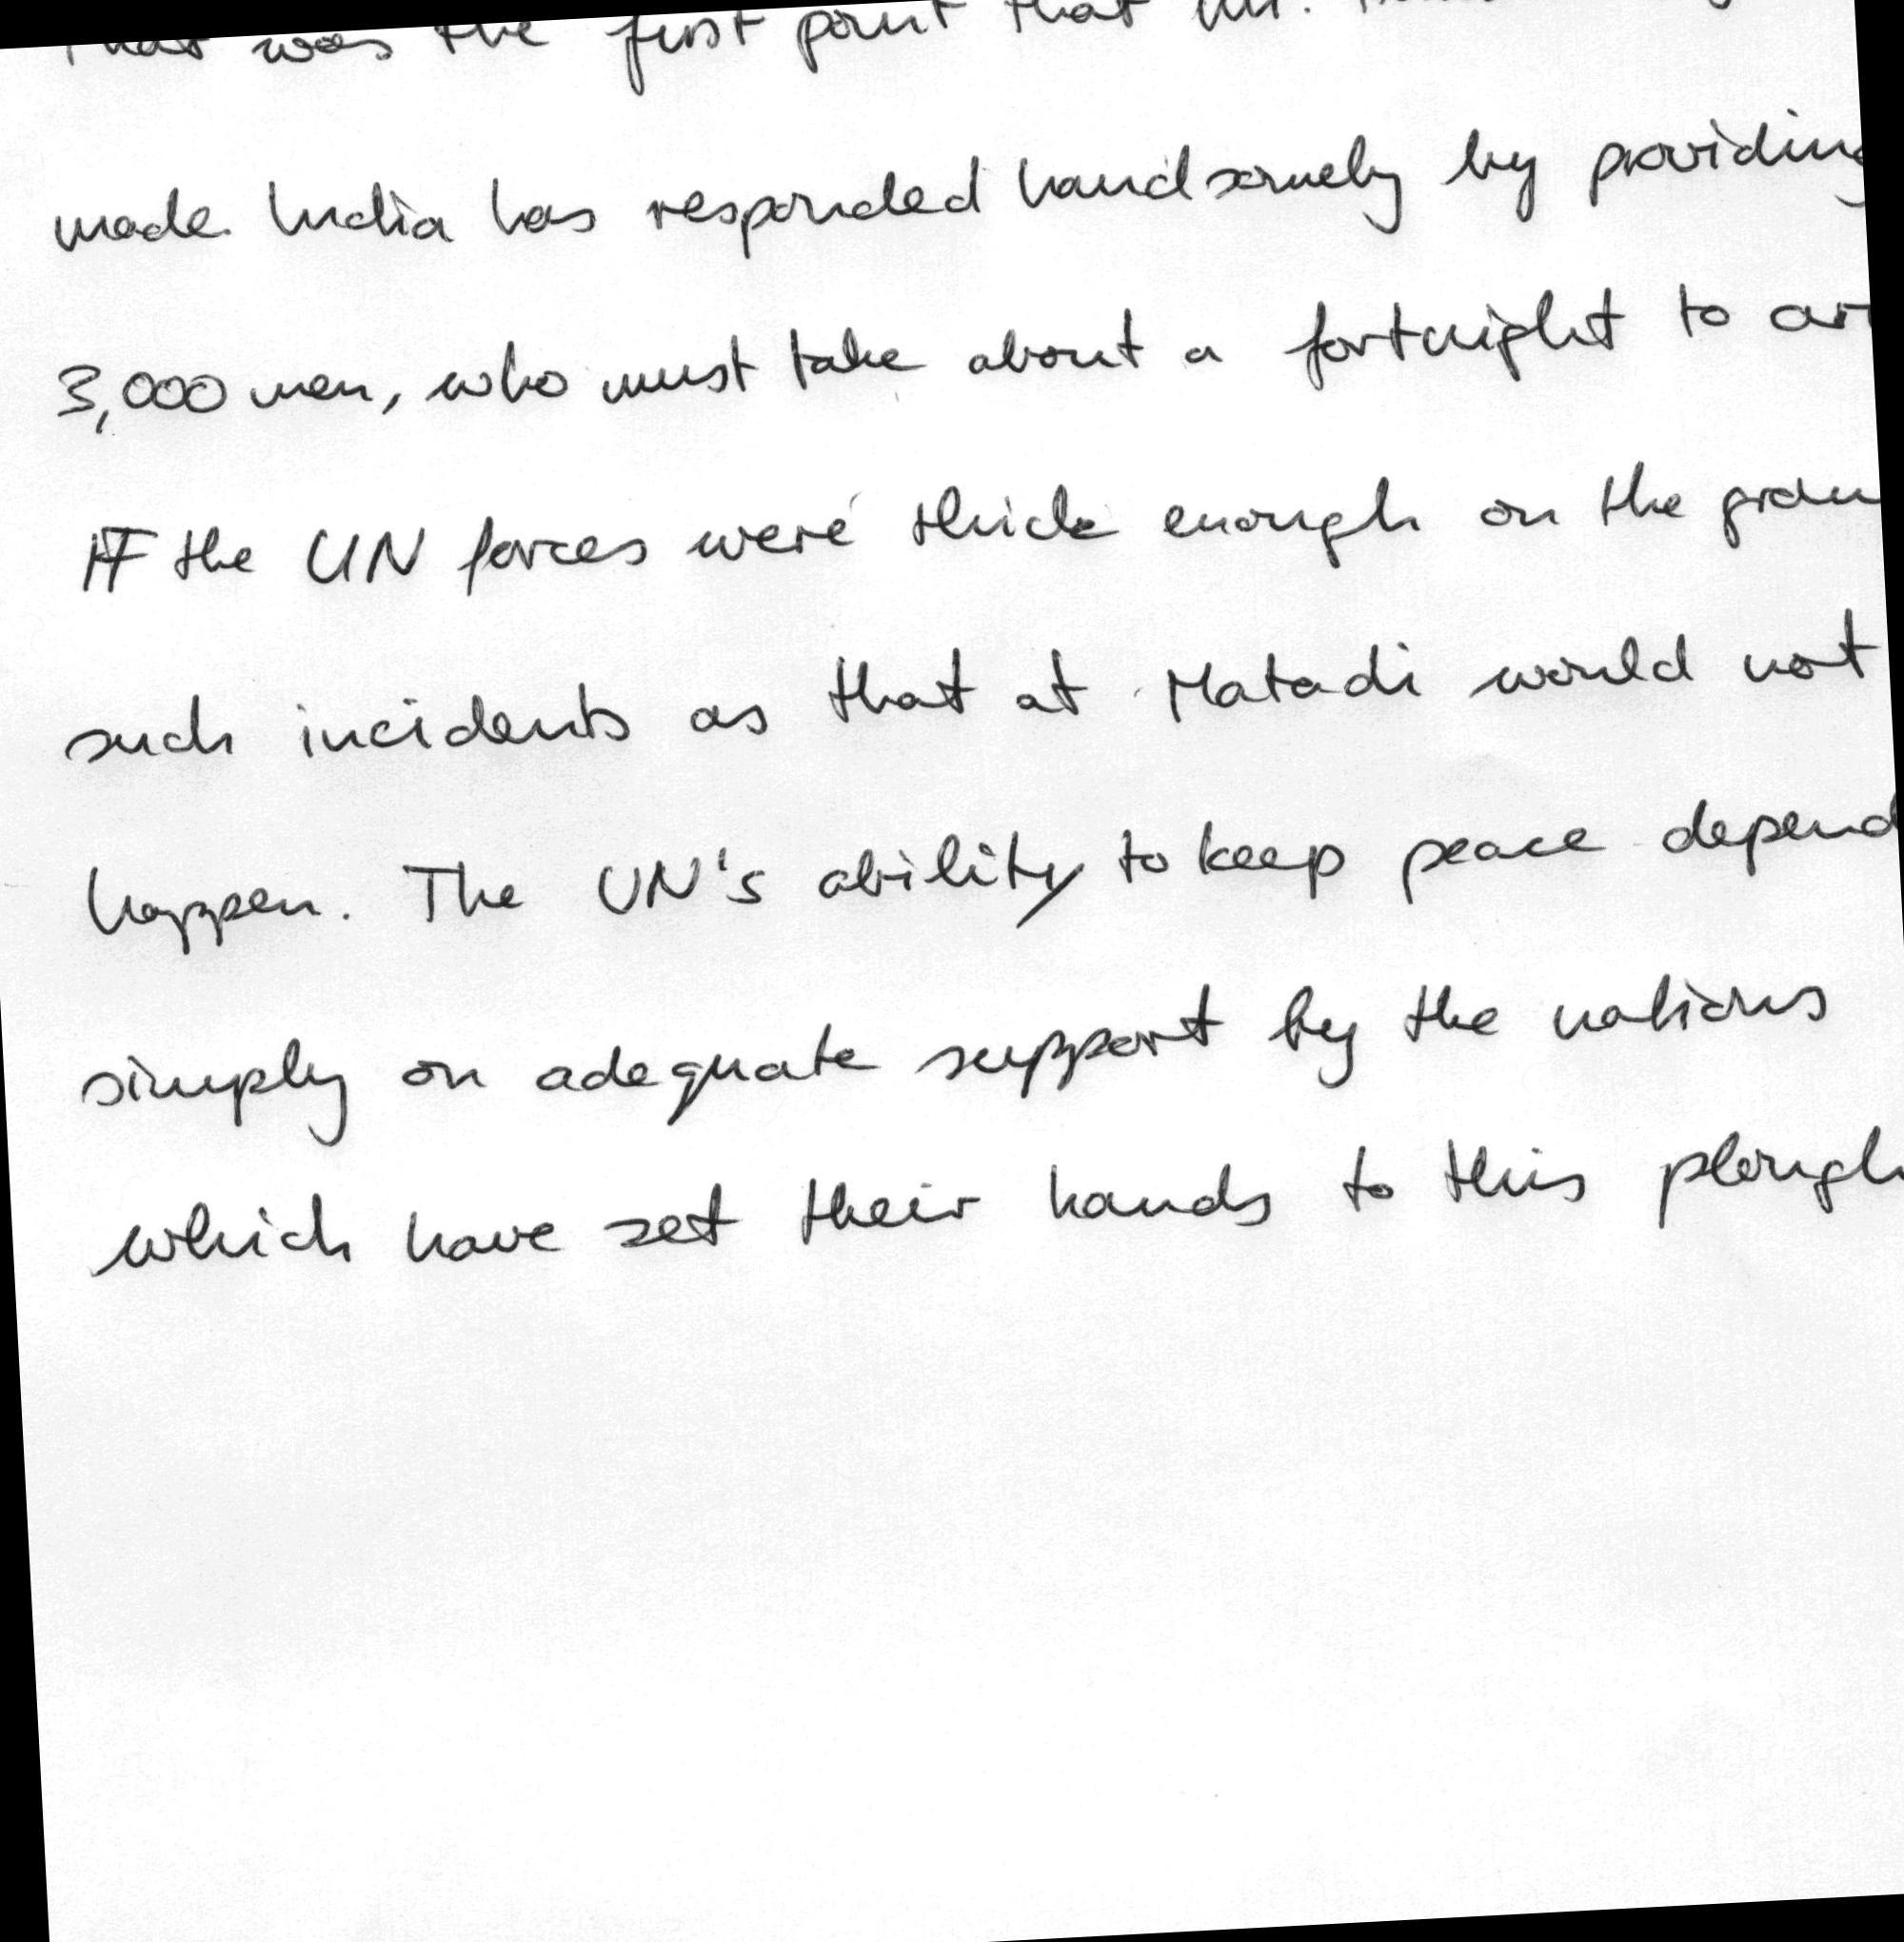 That was the first point that Mr.
made. India has responded handsomely by providing
3,000 men, who must take about a fortnight to
IF the UN forces were thick enough on the
such incidents as that at Matadi would not
happen. The UN's ability to keep peace depend
simply on adequate support by the nations
which have set their hands to this plough